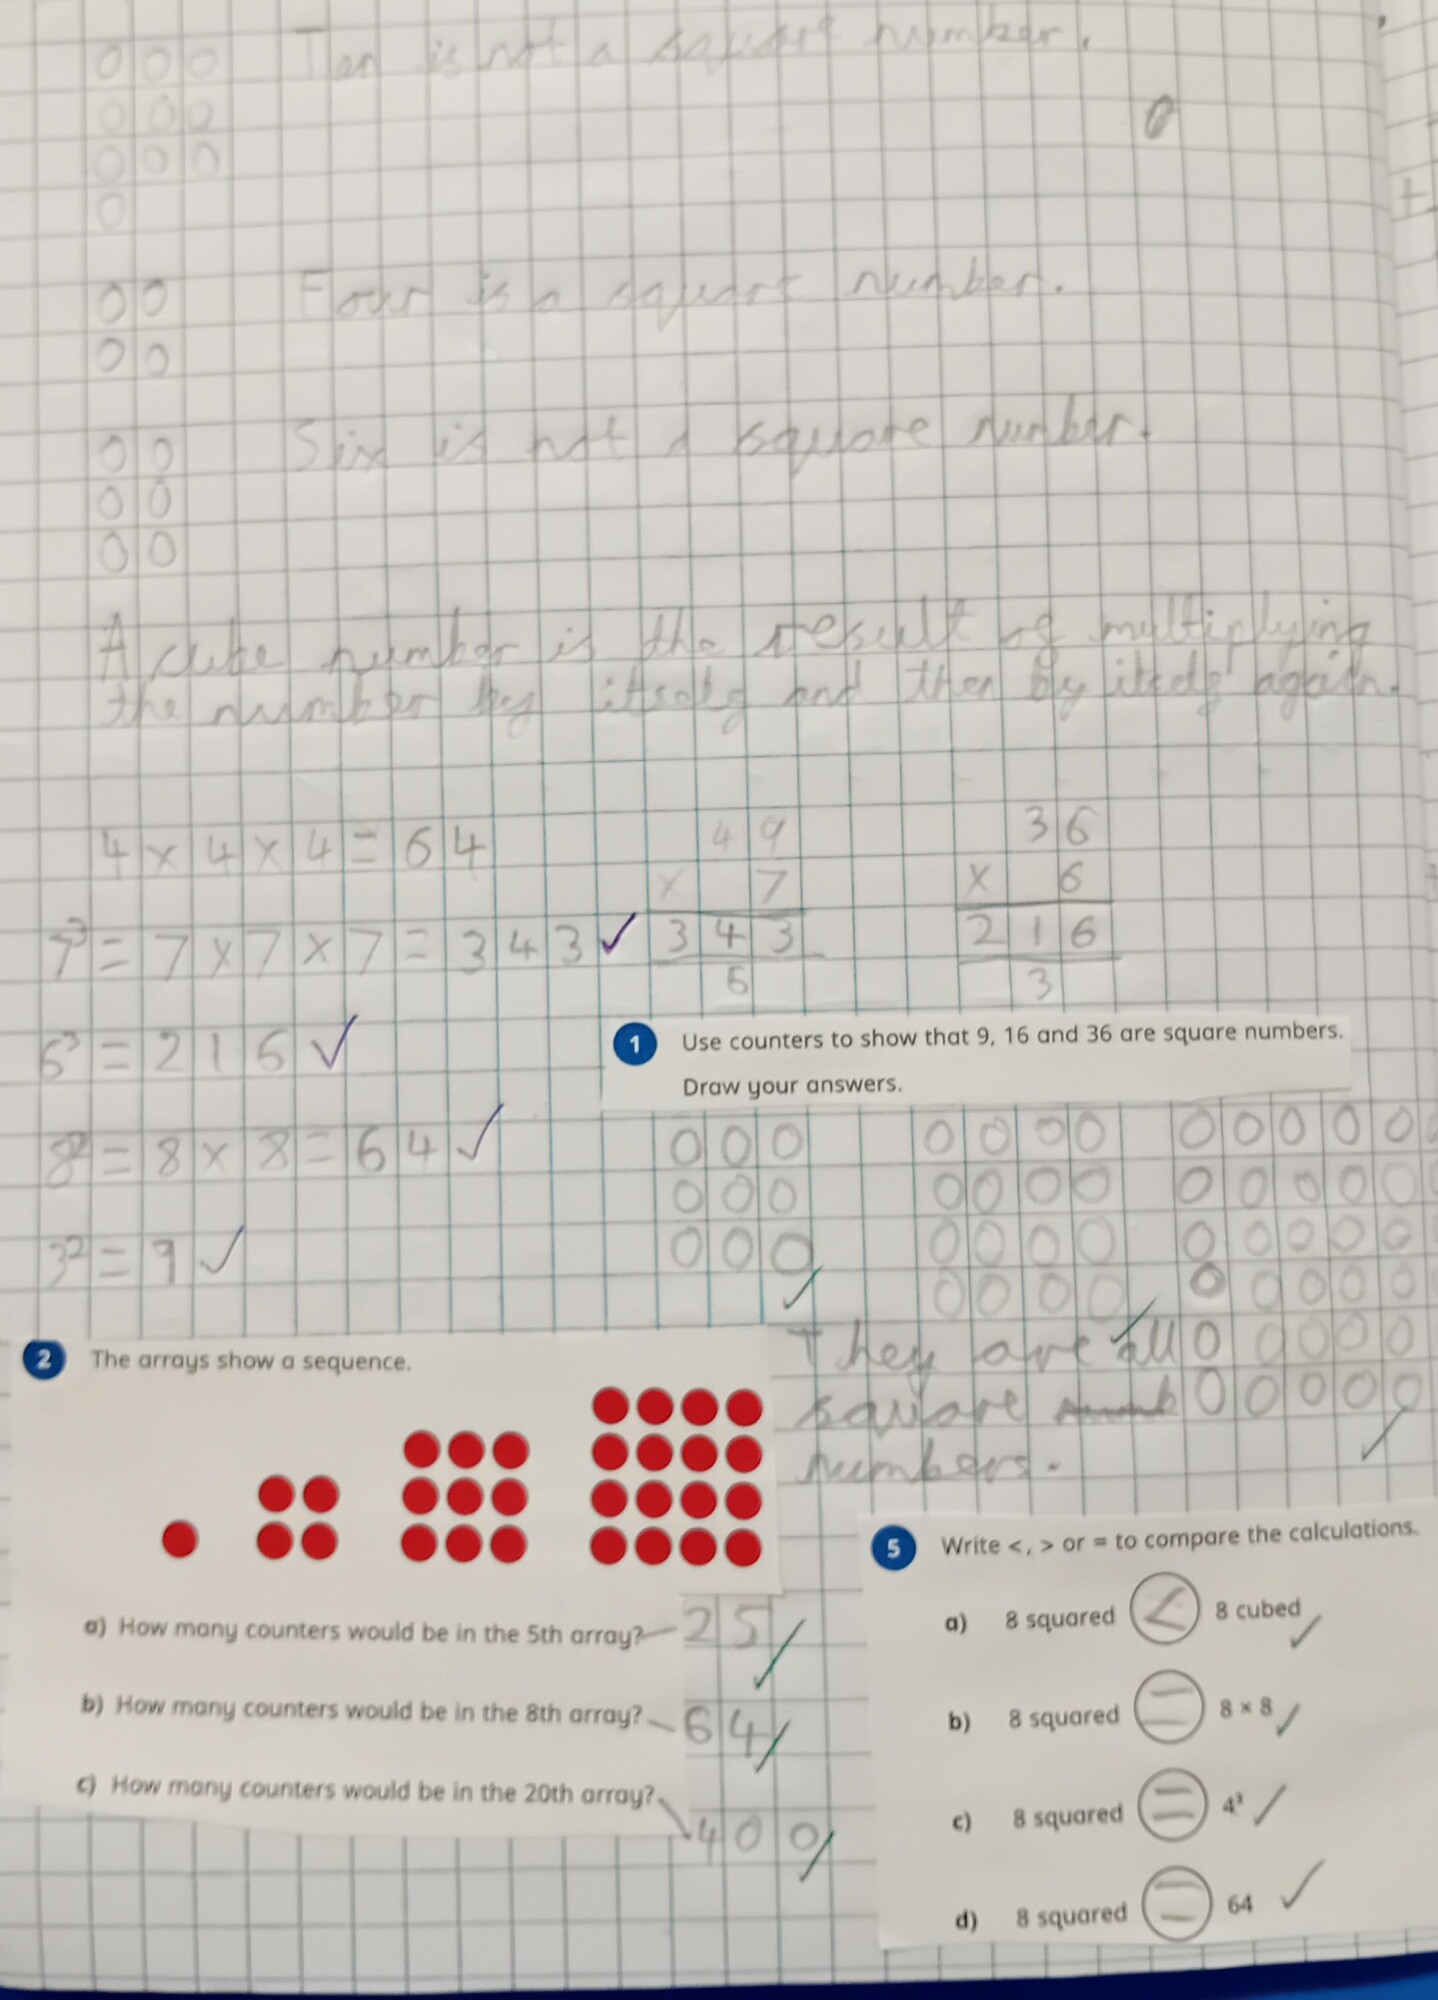 Ten is not a square number.
Four is a square number.
Six is not a square number.
A cube number is the result of multiplying
the number by itself and then by itself again.
4 × 4 × 4 = 64
49
× 7
343
6
36
× 6
216
3
7³ = 7 × 7 × 7 = 343 ✓
6³ = 216 ✓
8² = 8 × 8 = 64 ✓
3² = 9 ✓
1 Use counters to show that 9, 16 and 36 are square numbers.
Draw your answers.
They are all
square
numbers.
2 The arrays show a sequence.
a) How many counters would be in the 5th array? 25
b) How many counters would be in the 8th array? 64
c) How many counters would be in the 20th array? 400
5 Write <, > or = to compare the calculations.
a) 8 squared < 8 cubed
b) 8 squared = 8 × 8
c) 8 squared = 4³
d) 8 squared = 64